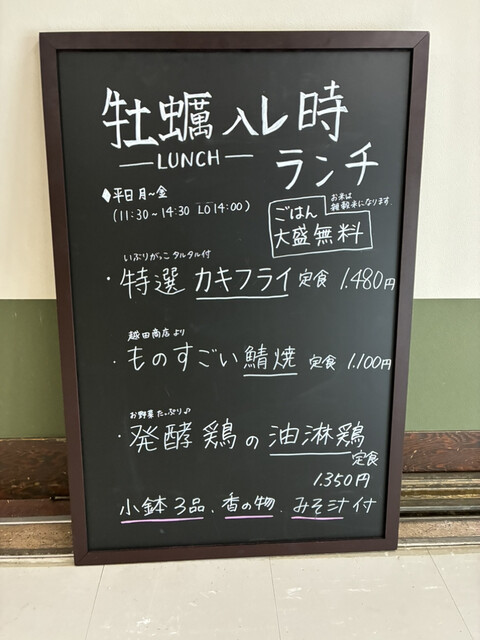 牡蠣入レ時
LUNCH
ランチ
♦平日月~金
(11:30~14:30 LO 14:00)
ごはん
大盛無料
お米は
雑穀米になります.
いぶりがっこタルタル付
・特選 カキフライ定食 1.480円
越田商店より
・ものすごい鯖焼 定食 1.100円
お野菜たっぷり♪
・発酵鶏の油淋鶏
定食
1.350円
小鉢3品、香の物、みそ汁付